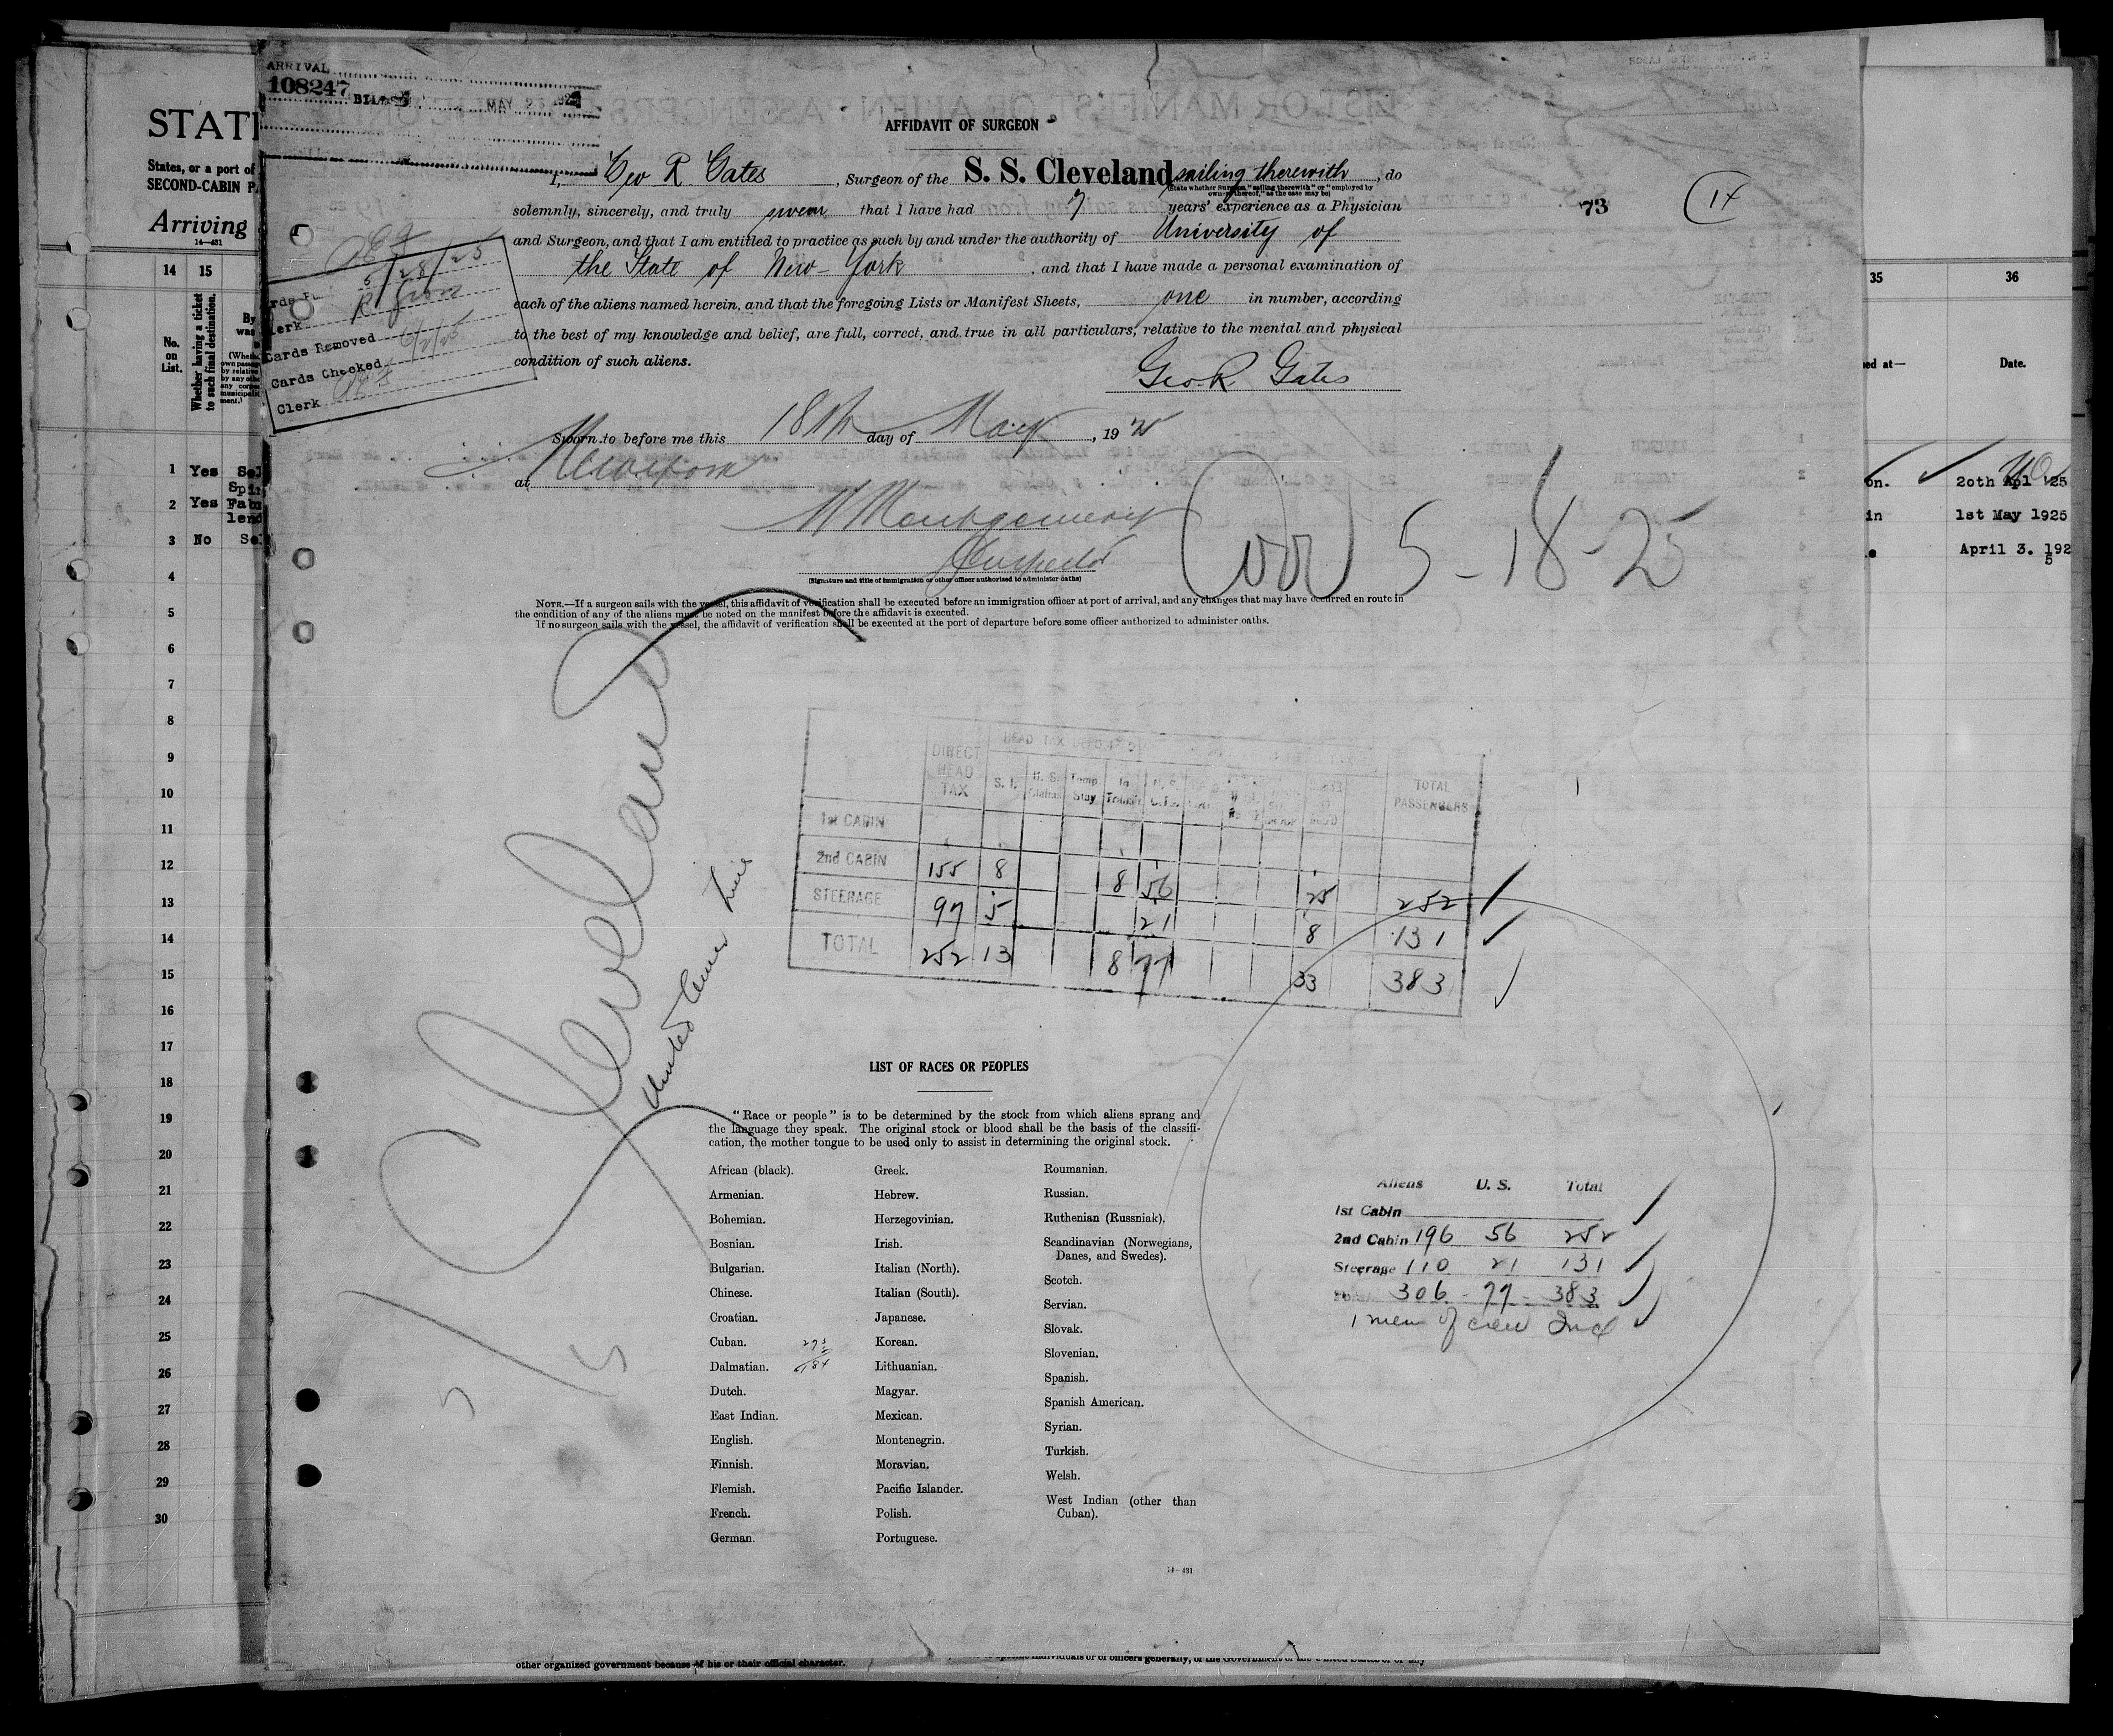 ARRIVAL
108247
MAY
STAT
States, or a port of
SECOND-CABIN P
Arriving
14—431
14 15
No. on List.
Whether having a ticket to such final destination.
By
was
1 Yes Sel
Spi
2 Yes Fat
len
3 No Se
4
5
6
7
8
9
10
11
12
13
14
15
16
17
18
19
20
21
22
23
24
25
26
27
28
29
30
5/28/25
Clerk
Cards Removed
Cards Checked
Clerk
AFFIDAVIT OF SURGEON
I, Geo R. Gates, Surgeon of the S. S. Cleveland sailing therewith, do
(State whether Surgeon "sailing therewith" or "employed by
owners thereof," as the case may be)
solemnly, sincerely, and truly swear that I have had 7 years' experience as a Physician
and Surgeon, and that I am entitled to practice as such by and under the authority of University of
the State of New-York, and that I have made a personal examination of
each of the aliens named herein, and that the foregoing Lists or Manifest Sheets, one in number, according
to the best of my knowledge and belief, are full, correct, and true in all particulars, relative to the mental and physical
condition of such aliens.
Geo R Gates
73
14
Sworn to before me this 18th day of May, 19 25
at
W Montgomery
Inspector
(Signature and title of immigration or other officer authorized to administer oaths)
5-18-25
NOTE.—If a surgeon sails with the vessel, this affidavit of verification shall be executed before an immigration officer at port of arrival, and any changes that may have occurred en route in
the condition of any of the aliens must be noted on the manifest before the affidavit is executed.
If no surgeon sails with the vessel, the affidavit of verification shall be executed at the port of departure before some officer authorized to administer oaths.
Cleveland
United Amer Line
HEAD TAX
DIRECT HEAD TAX S. I. U. S. Temp Stay In Transit U. S. TOTAL PASSENGERS
1st CABIN
2nd CABIN 155 8 8 56 25 252
STEERAGE 97 5 21 8 131
TOTAL 252 13 8 77 33 383
LIST OF RACES OR PEOPLES
"Race or people" is to be determined by the stock from which aliens sprang and
the language they speak. The original stock or blood shall be the basis of the classifi-
cation, the mother tongue to be used only to assist in determining the original stock.
African (black).
Armenian.
Bohemian.
Bosnian.
Bulgarian.
Chinese.
Croatian.
Cuban.
Dalmatian.
Dutch.
East Indian.
English.
Finnish.
Flemish.
French.
German.
Greek.
Hebrew.
Herzegovinian.
Irish.
Italian (North).
Italian (South).
Japanese.
Korean.
Lithuanian.
Magyar.
Mexican.
Montenegrin.
Moravian.
Pacific Islander.
Polish.
Portuguese.
Roumanian.
Russian.
Ruthenian (Russniak).
Scandinavian (Norwegians,
Danes, and Swedes).
Scotch.
Servian.
Slovak.
Slovenian.
Spanish.
Spanish American.
Syrian.
Turkish.
Welsh.
West Indian (other than
Cuban).
14—431
Aliens U. S. Total
1st Cabin
2nd Cabin 196 56 252
Steerage 110 21 131
Total 306 - 77 - 383
1 mem of crew 2nd
35 36
ed at— Date.
on. 20th Apl '25
in 1st May 1925
April 3. 192
5
other organized government because of his or their official character.